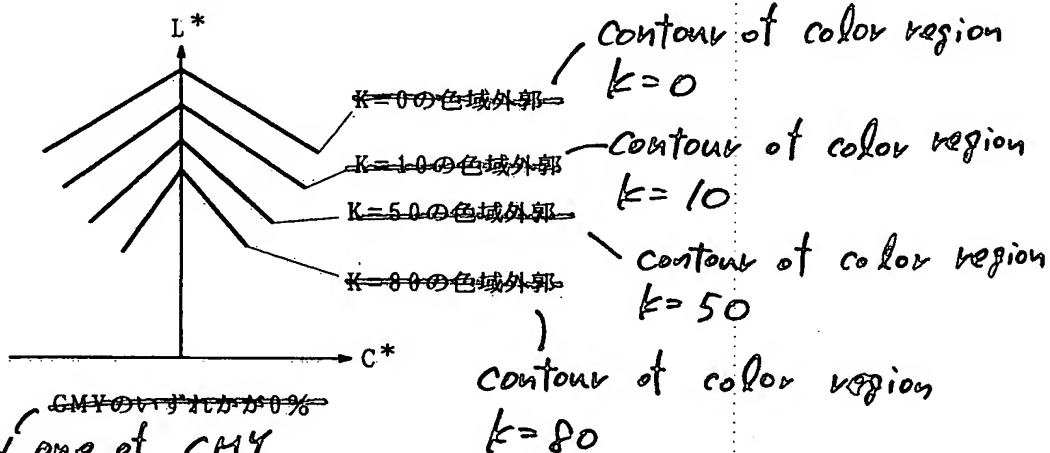 L*
contour of color region
k=0
K=0の色域外郭
contour of color region
k=10
K=10の色域外郭
K=50の色域外郭
contour of color region
k=50
K=80の色域外郭
C*
contour of color region
k=80
CMYのいずれかが0%
one of CMY